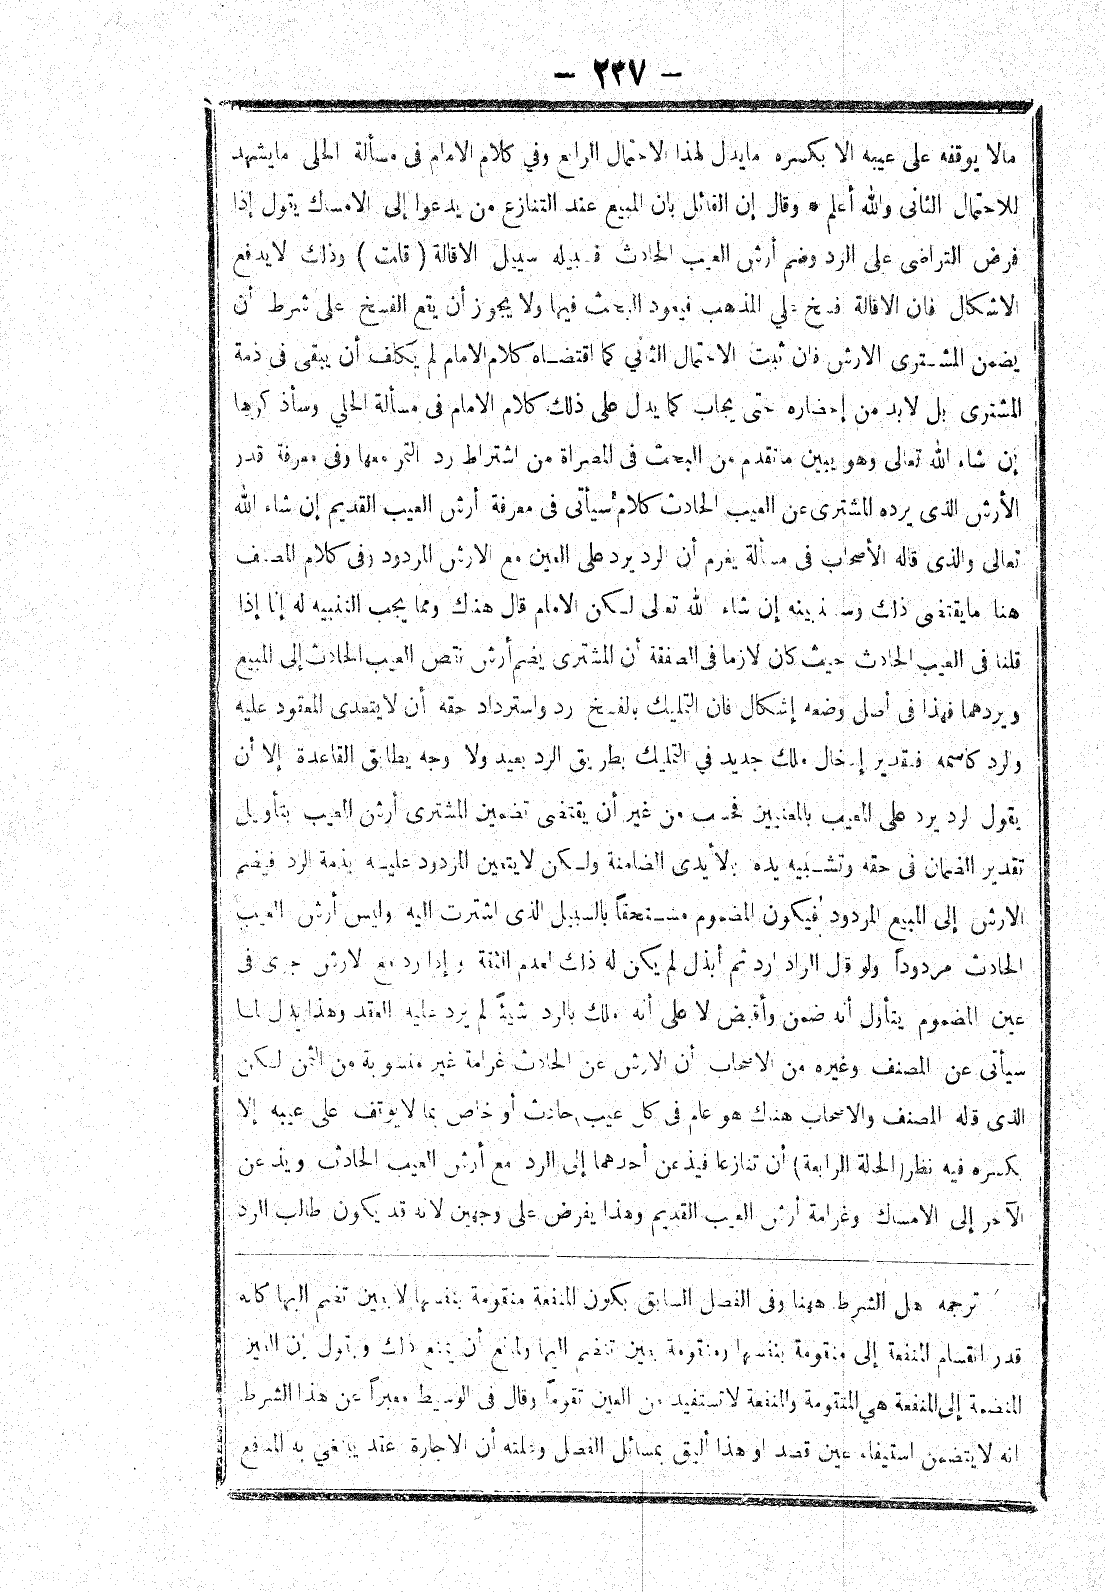 — ٢٣٧ —
مالا يوقفه على عيبه الا بكسره مايدل لهذا الاحتمال الرابع وفي كلام الامام فى مسألة الحلى مايشهد
للاحتمال الثانى والله أعلم * وقال إن القائل بان المبيع عند التنازع من يدعوا إلى الامساك يقول إذا
فرض التراضى على الرد وضم أرش العيب الحادث فسبيله سبيل الاقالة ( قلت ) وذلك لايدفع
الاشكال فان الاقالة فسخ على المذهب فيعود البحث فيها ولا يجوز أن يقع الفسخ على شرط أن
يضمن المشترى الارش فان ثبت الاحتمال الثانى كما اقتضاه كلام الامام لم يكلف أن يبقى فى ذمة
المشترى بل لابد من إحضاره حتى يجاب كما يدل على ذلك كلام الامام فى مسألة الحلي وسأذكرها
إن شاء الله تعالى وهو يبين ماتقدم من البحث فى المصراة من اشتراط رد التمر معها وفى معرفة قدر
الأرش الذى يرده المشترى عن العيب الحادث كلام سيأتى فى معرفة أرش العيب القديم إن شاء الله
تعالى والذى قاله الأصحاب فى مسألة يغرم أن الرد يرد على العين مع الارش المردود وفى كلام المصنف
هنا مايقتضى ذلك وسنذبينه إن شاء الله تعالى لكن الامام قال هناك ومما يجب التنبيه له إنا إذا
قلنا فى العيب الحادث حيث كان لازما فى الصفقة أن المشترى يضم أرش نقص العيب الحادث إلى المبيع
ويردهما فهذا فى أصل وضعه إشكال فان التمليك بالفسخ رد واسترداد حقه أن لايتعدى المعقود عليه
والرد كاسمه فتقدير إدخال ملك جديد في التمليك بطريق الرد بعيد ولا وجه يطابق القاعدة إلا أن
يقول الرد يرد على المعيب بالعيبين فحسب من غير أن يقتضى تضمين المشترى أرش العيب بتأويل
تقدير الضمان فى حقه وتشبيه يده بالأيدى الضامنة ولكن لايتعين المردود عليه بذمة الراد فيضم
الارش إلى المبيع المردود فيكون المضموم مستحقاً بالسبيل الذى اشترت اليه وليس أرش العيب
الحادث مردوداً ولو قال الراد أرد ثم أبذل لم يكن له ذلك لعدم الثقة وإذا رد مع الارش جرى فى
عين المضموم يتأول أنه ضمن وأقبض لا على أنه ملك بالرد شيئاً لم يرد عليه العقد وهذا يدل لما
سيأتى عن المصنف وغيره من الاصحاب أن الارش عن الحادث غرامة غير منسوبة من الثمن لكن
الذى قاله المصنف والاصحاب هناك هو عام فى كل عيب حادث أو خاص بما لايوقف على عيبه إلا
بكسره فيه نظر (الحالة الرابعة) أن تنازعا فيذعن أحدهما إلى الرد مع أرش العيب الحادث ويذعن
الآخر إلى الامساك وغرامة أرش العيب القديم وهذا يفرض على وجهين لانه قد يكون طالب الرد
ترجمه هل الشرط ههنا وفى الفصل السابق بكون المنفعة متقومة بنفسها لا بعين تضم اليها كأنه
قدر انقسام المنفعة إلى متقومة بنفسها ومتقومة بعين تنضم اليها ولمانع أن يمنع ذلك ويقول إن العين
المنضمة إلى المنفعة هي المتقومة والمنفعة لاتستفيد من العين تقوماً وقال فى الوسيط معبراً عن هذا الشرط
انه لايتضمن استيفاء عين قصد او هذا أليق بمسائل الفصل وعلته أن الاجارة عقد يبتغي به المنافع